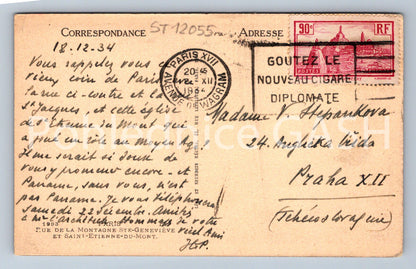 CORRESPONDANCE
ST 12055
ADRESSE
18.12.34
Vous rappelez vous ce
vieux coin de Paris
Pierre ci-contre et la
St Jacques, et cette église
d'Etienne du Mont qui
a fait école au moyen âge!
Il me serait si doux de
vous y promener encore. et
Paname, sans vous, n'est
pas Paname. Je vous téléphonerai
samedi 22 décembre. Amitiés
à Mr l'architecte. Hommages de votre
vieil ami
PARIS XVII
AVENUE DE WAGRAM
20 45
XII
1934
90c
RF
POSTES
GOUTEZ LE
NOUVEAU CIGARE
DIPLOMATE
Madame V. Stepankova
24. Anglicka třída
Praha XII
Tchécoslovaquie
RUE DE LA MONTAGNE STE-GENEVIÈVE
ET SAINT-ETIENNE-DU-MONT.